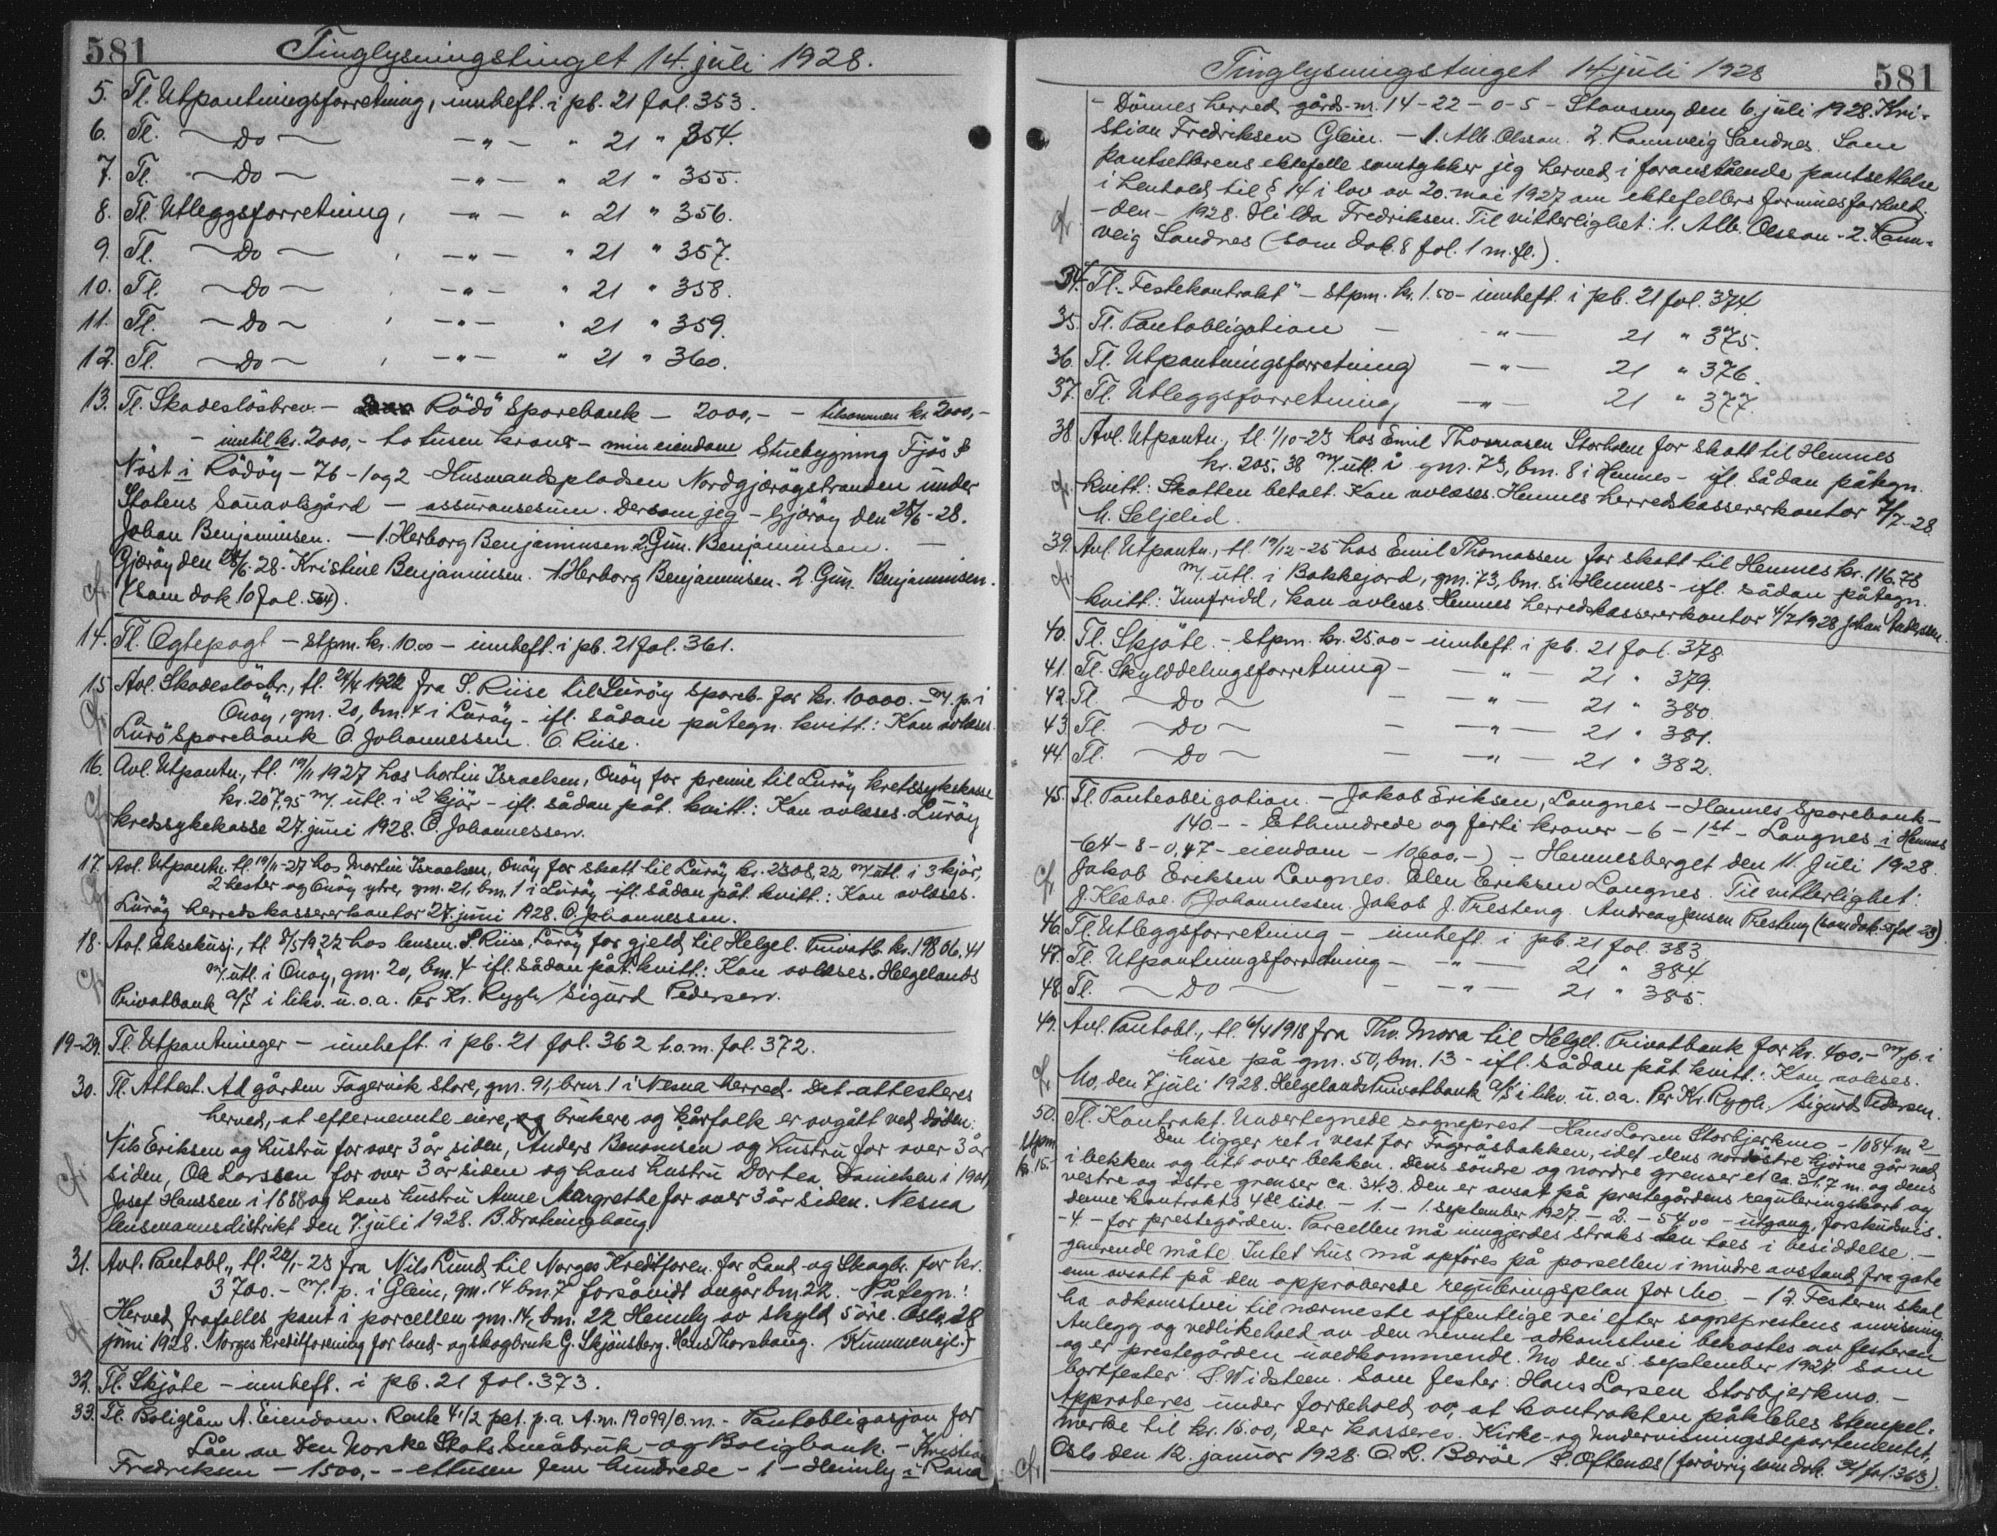 581 Tinglysningstinget 14. juli 1928.
5. Tl. Utpantningsforretning, innheft. i pb. 21 fol. 353.
6. Tl. — Do — — " — " 21 " 354.
7. Tl. — Do — — " — " 21 " 355.
8. Tl. Utleggsforretning, — " — " 21 " 356.
9. Tl. — Do — , — " — " 21 " 357.
10. Tl. — Do — , — " — " 21 " 358.
11. Tl. — Do — , — " — " 21 " 359.
12. Tl. — Do — , — " — " 21 " 360.
13. Tl. Skadeslösbrev. — Rödö Sparebank — 2000,- — tilsammen kr. 2000,-
- inntil kr. 2000,- to tusen kroner - min eiendom Stuebygning Fjös &
Nöst i Rödöy - 76 - 1 og 2 - Husmandspladsen Nordgjæröystranden under
Statens gård - assuransesum. Dersom jeg - Gjæröy den 28/6 - 28.
Johan Benjaminsen. — 1. Herborg Benjaminsen 2. Gun. Benjaminsen. —
Gjæröy den 28/6-28. Kristine Benjaminsen. 1. Herborg Benjaminsen. 2. Gun. Benjaminsen.
(Som dok 10 fol. 564).
14. Tl. Ogtepagt - stpm. kr. 10.00 - innheft. i pb. 21 fol. 361.
15. Avl. Skadeslösbr., tl. 24/4 1922 fra S. Riise til Luröy Spareb. for kr. 10000.- m/ p. i
Onöy, gnr. 20, bnr. 4 i Luröy - ifl. sådan påtegn. kvitt.: Kan avleses.
Lurö Sparebank O. Johannessen. O. Riise.
16. Avl. Utpantn., tl. 19/11 1927 hos Martin Israelsen, Onöy for premie til Luröy kretssykekasse
kr. 207,95 m/ utl. i 2 kjör - ifl. sådan påt. kvitt.: Kan avleses. Luröy
kredssykekasse 27. juni 1928. O. Johannessen.
17. Avl. Utpantn. tl. 19/11-27 hos Martin Israelsen, Onöy for skatt til Luröy kr. 2308,22 m/ utl. i 3 kjör,
2 hester og Onöy ytre, gnr. 21, bnr. 1 i Luröy ifl. sådan påt. kvitt.: Kan avleses.
Luröy herredskassererkontor 27. juni 1928. O. Johannessen.
18. Avl. Eksekusj., tl. 1922 hos lensm. S. Riise, Luröy for gjeld til Helgel. Privatb. kr. 19806,41
m/ utl. i Onöy, gnr. 20, bnr. 4 ifl. sådan påt. kvitt.: Kan avleses. Helgelands
Privatbank A/S i likv. u. o. a. Per Kr. Rygh / Sigurd Pedersen.
19-29. Tl. Utpantninger - innheft. i pb. 21 fol. 362 t. o. m. fol. 372.
30. Tl. Attest. At gården Fagervik store, gnr. 91, brnr. 1 i Nesna herred. Det attesteres
herved, at efternevnte eiere, og brukere og kårfolk er avgått ved döden:
Nils Eriksen og hustru for over 3 år siden, Anders Benonsen og hustru for over 3 år
siden, Ole Larssen for over 3 år siden og hans hustru Dortea Danielsen i 1901,
Josef Hanssen i 1888 og hans hustru Anne Margrethe for over 3 år siden. Nesna
lensmannsdistrikt den 7. juli 1928. B. Drakinghaug
31. Avl. Pantobl., tl. 22/1-23 fra Nils Lund til Norges Kreditforen. for Land- og Skogbr. for kr.
3700.- m/ p. i Glein, gnr. 14 bnr. 7 forsåvidt angår bnr. 22. - Påtegn.:
Herved frafalles pant i parcellen gnr. 14 bnr. 22 Heimly av skyld 5 öre. Oslo, 28
juni 1928. Norges Kreditforening for land- og skogbruk G. Skjönsberg. Hans Thorshaug.
32. Tl. Skjöte - innheft. i pb. 21 fol. 373.
33. Tl. Boliglån A. Eiendom. Rente 4 1/2 pct. p. a. A. nr. 19099/O. m. - Pantobligasjon for
Lån av Den Norske Stats Småbruk- og Boligbank. - Kristian
Fredriksen - 1500,- - ettusen fem hundrede - 1 - Heimly i Rana
Tinglysningstinget 14 juli 1928 581
- Dönnes herred gårds-nr. 14-22-0-5 - den 6 juli 1928. Kri-
stian Fredriksen Glein. - 1. Alb. Olsson. 2. Rannveig Sandnes. Som
pantsetterens ektefelle samtykker jeg herved i foranstående pantsettelse
i henhold til § 14 i lov av 20. mai 1927 om ektefellers formuesforhold.
- den - 1928. Hilda Fredriksen. Til vitterlighet: 1. Alb. Olsson - 2. Rann-
veig Sandnes (som dok. 8 fol. 1 m. fl.).
34. Tl. "Festekontrakt" - stpm. kr. 1.50 - innheft. i pb. 21 fol. 374.
35. Tl. Pantobligation — " — 21 " 375.
36. Tl. Utpantningsforretning — " — 21 " 376.
37. Tl. Utleggsforretning — " — 21 " 377.
38. Avl. Utpantn., tl. 1/10-23 hos Emil Thomasen Storholm for skatt til Hemnes
kr. 205,38 m/ utl. i gnr. 73, bnr. 8 i Hemnes - ifl. sådan påtegn.
kvitt.: Skatten betalt. Kan avleses. Hemnes herredskassererkontor 4/7-28.
M. Seljelid.
39. Avl. Utpantn., tl. 19/12-25 hos Emil Thomassen for skatt til Hemnes kr. 116,78
m/ utl. i Bakkejord, gnr. 73, bnr. 8 i Hemnes - ifl. sådan påtegn.
kvitt.: Innfridd, kan avleses. Hemnes herredskassererkontor 4/7 1928 Johan Andersen.
40. Tl. Skjöte. - stpm. kr. 25.00 - innheft. i pb. 21 fol. 378
41. Tl. Skylddelingsforretning - — " — 21 " 379.
42. Tl. — Do — — " — 21 " 380.
43. Tl. — Do — — " — 21 " 381.
44. Tl. — Do — — " — 21 " 382.
45. Tl. Panteobligation. - Jakob Eriksen, Langnes - Hemnes Sparebank -
140.- - Ethundrede og förti kroner - 6 - 1st - Langnes i Hemnes
- 64 - 8 - 0,47 - eiendom - 10600,-) - Hemnesberget den 11. Juli 1928.
Jakob Eriksen Langnes. Elen Eriksen Langnes. Til vitterlighet:
J. Klæboe. P. Johannessen. Jakob J. Presteng. Andreas Jensen Presteng (som dok.
46. Tl. Utleggsforretning - innheft. i pb. 21 fol. 383
47. Tl. Utpantningsforretning - — " — 21 " 384
48. Tl. — Do — — " — 21 " 385.
49. Avl. Pantobl., tl. 6/4 1918 fra Thv. Mora til Helgel. Privatbank for kr. 400,- m/ p. i
huse på gnr. 50, bnr. 13 - ifl. sådan påt. kvitt.: Kan avleses.
Mo, den 7 juli 1928. Helgelands Privatbank A/S i likv. u. o. a. Per Kr. Rygh. / Sigurd Pedersen.
50. Tl. Kontrakt. Undertegnede sogneprest - Hans Larsen Storbjerkmo - 1084 m2 -
Stpm Den ligger ret i vest for Fageråsbakken, idet dens nordöstre hjörne går ned
kr. 15.- i bekken og litt over bekken. Dens söndre og nordre grenser er ca. 31.7 m. og dens
vestre og östre grenser ca. 34.2. Den er avsat på prestegårdens reguleringskart og
denne kontrakts 4de side. - 1. - 1. september 1927. - 2. - 54.00 - utgang, forskudsvis.
- 4 - for prestegården. Parcellen må inngjerdes straks den taes i besiddelse. -
gjeurende måte. Intet hus må opföres på parsellen i mindre avstand fra gate
enn avsatt på den approberede reguleringsplan for Mo. - 12. Festeren skal
ha adkomstvei til nærmeste offentlige vei efter sogneprestens anvisning.
Anlegg og vedlikehold av den nevnte adkomstvei bekostes av festeren
og er prestegården uvedkommende. Mo den 5. september 1927. Som
bortfester: S. Widsteen. Som fester: Hans Larsen Storbjerkmo. -
Approberes under forbehold av, at kontrakten påklebes stempel-
merke til kr. 15.00, der kasseres. Kirke- og undervisningsdepartementet,
Oslo den 12. januar 1928. O. L. Bæröe / S. Oftenæs (forövrig som dok. fol. 363).